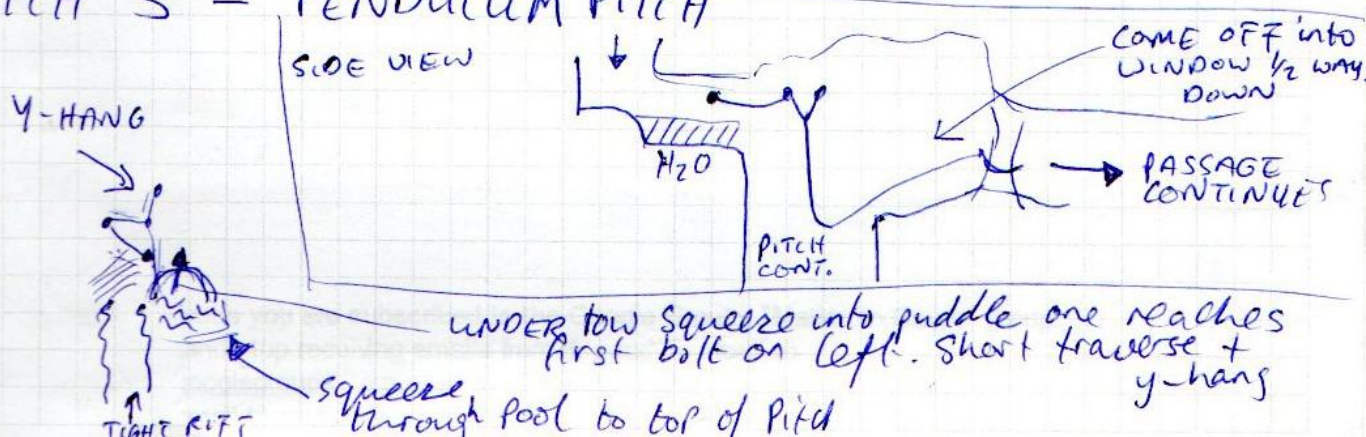 5 = PENDULUM PITCH
SIDE VIEW
COME OFF into
WINDOW 1/2 WAY
DOWN
Y-HANG
H2O
PASSAGE
CONTINUES
PITCH
CONT.
UNDER low squeeze into puddle one reaches
first bolt on left. Short traverse +
y-hang
squeeze
through pool to top of Pitch
TIGHT RIFT